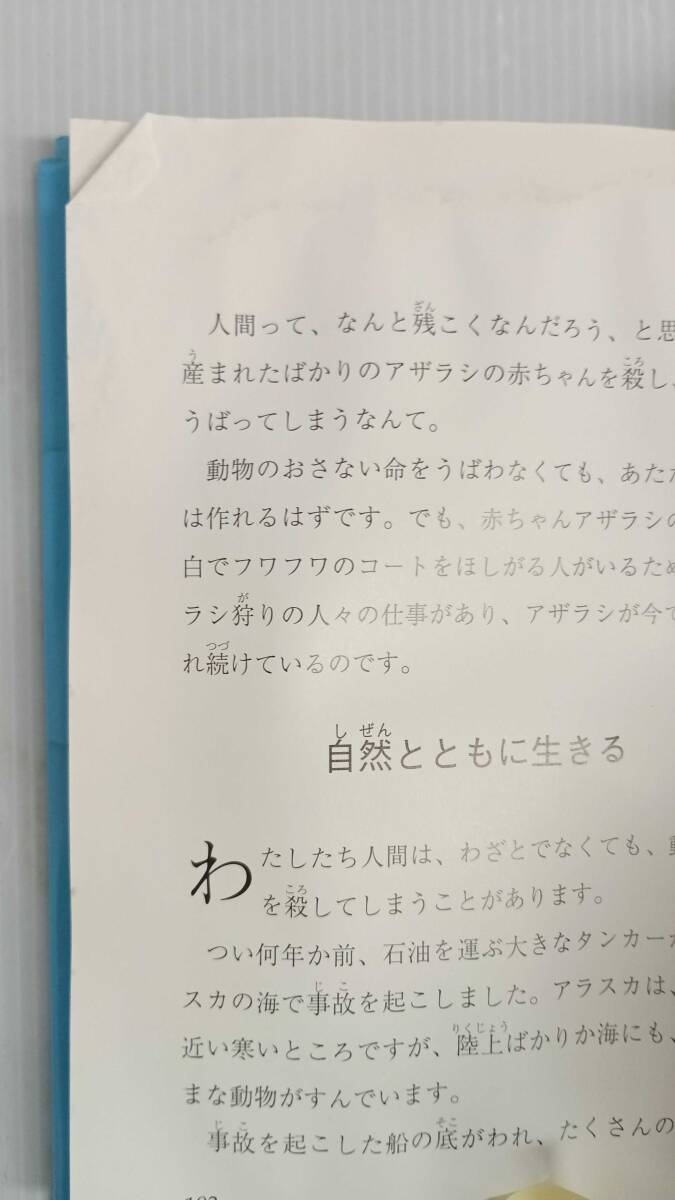 人間って、なんと残こくなんだろう、と思
産まれたばかりのアザラシの赤ちゃんを殺し、
うばってしまうなんて。
動物のおさない命をうばわなくても、あたた
は作れるはずです。でも、赤ちゃんアザラシの
白でフワフワのコートをほしがる人がいるため
ラシ狩りの人々の仕事があり、アザラシが今で
れ続けているのです。
自然とともに生きる
わたしたち人間は、わざとでなくても、動
を殺してしまうことがあります。
つい何年か前、石油を運ぶ大きなタンカーが
スカの海で事故を起こしました。アラスカは、
近い寒いところですが、陸上ばかりか海にも、
まな動物がすんでいます。
事故を起こした船の底がわれ、たくさんの